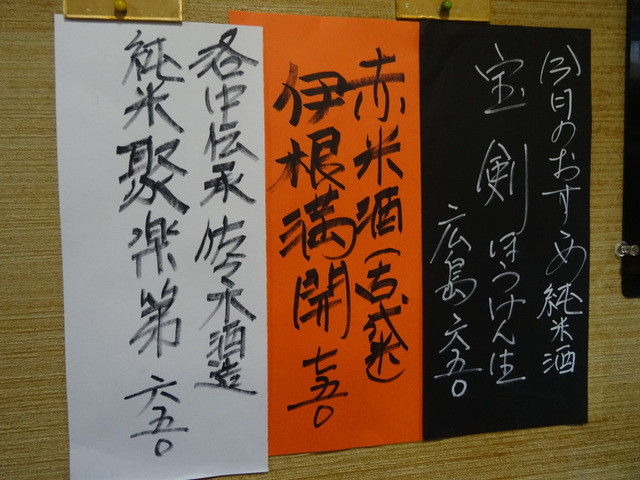 今日のおすすめ純米酒
宝剣ほうけん生
広島六五〇
赤米酒(古代米)
伊根満開七五〇
洛中伝承佐々木酒造
純米聚楽第六五〇